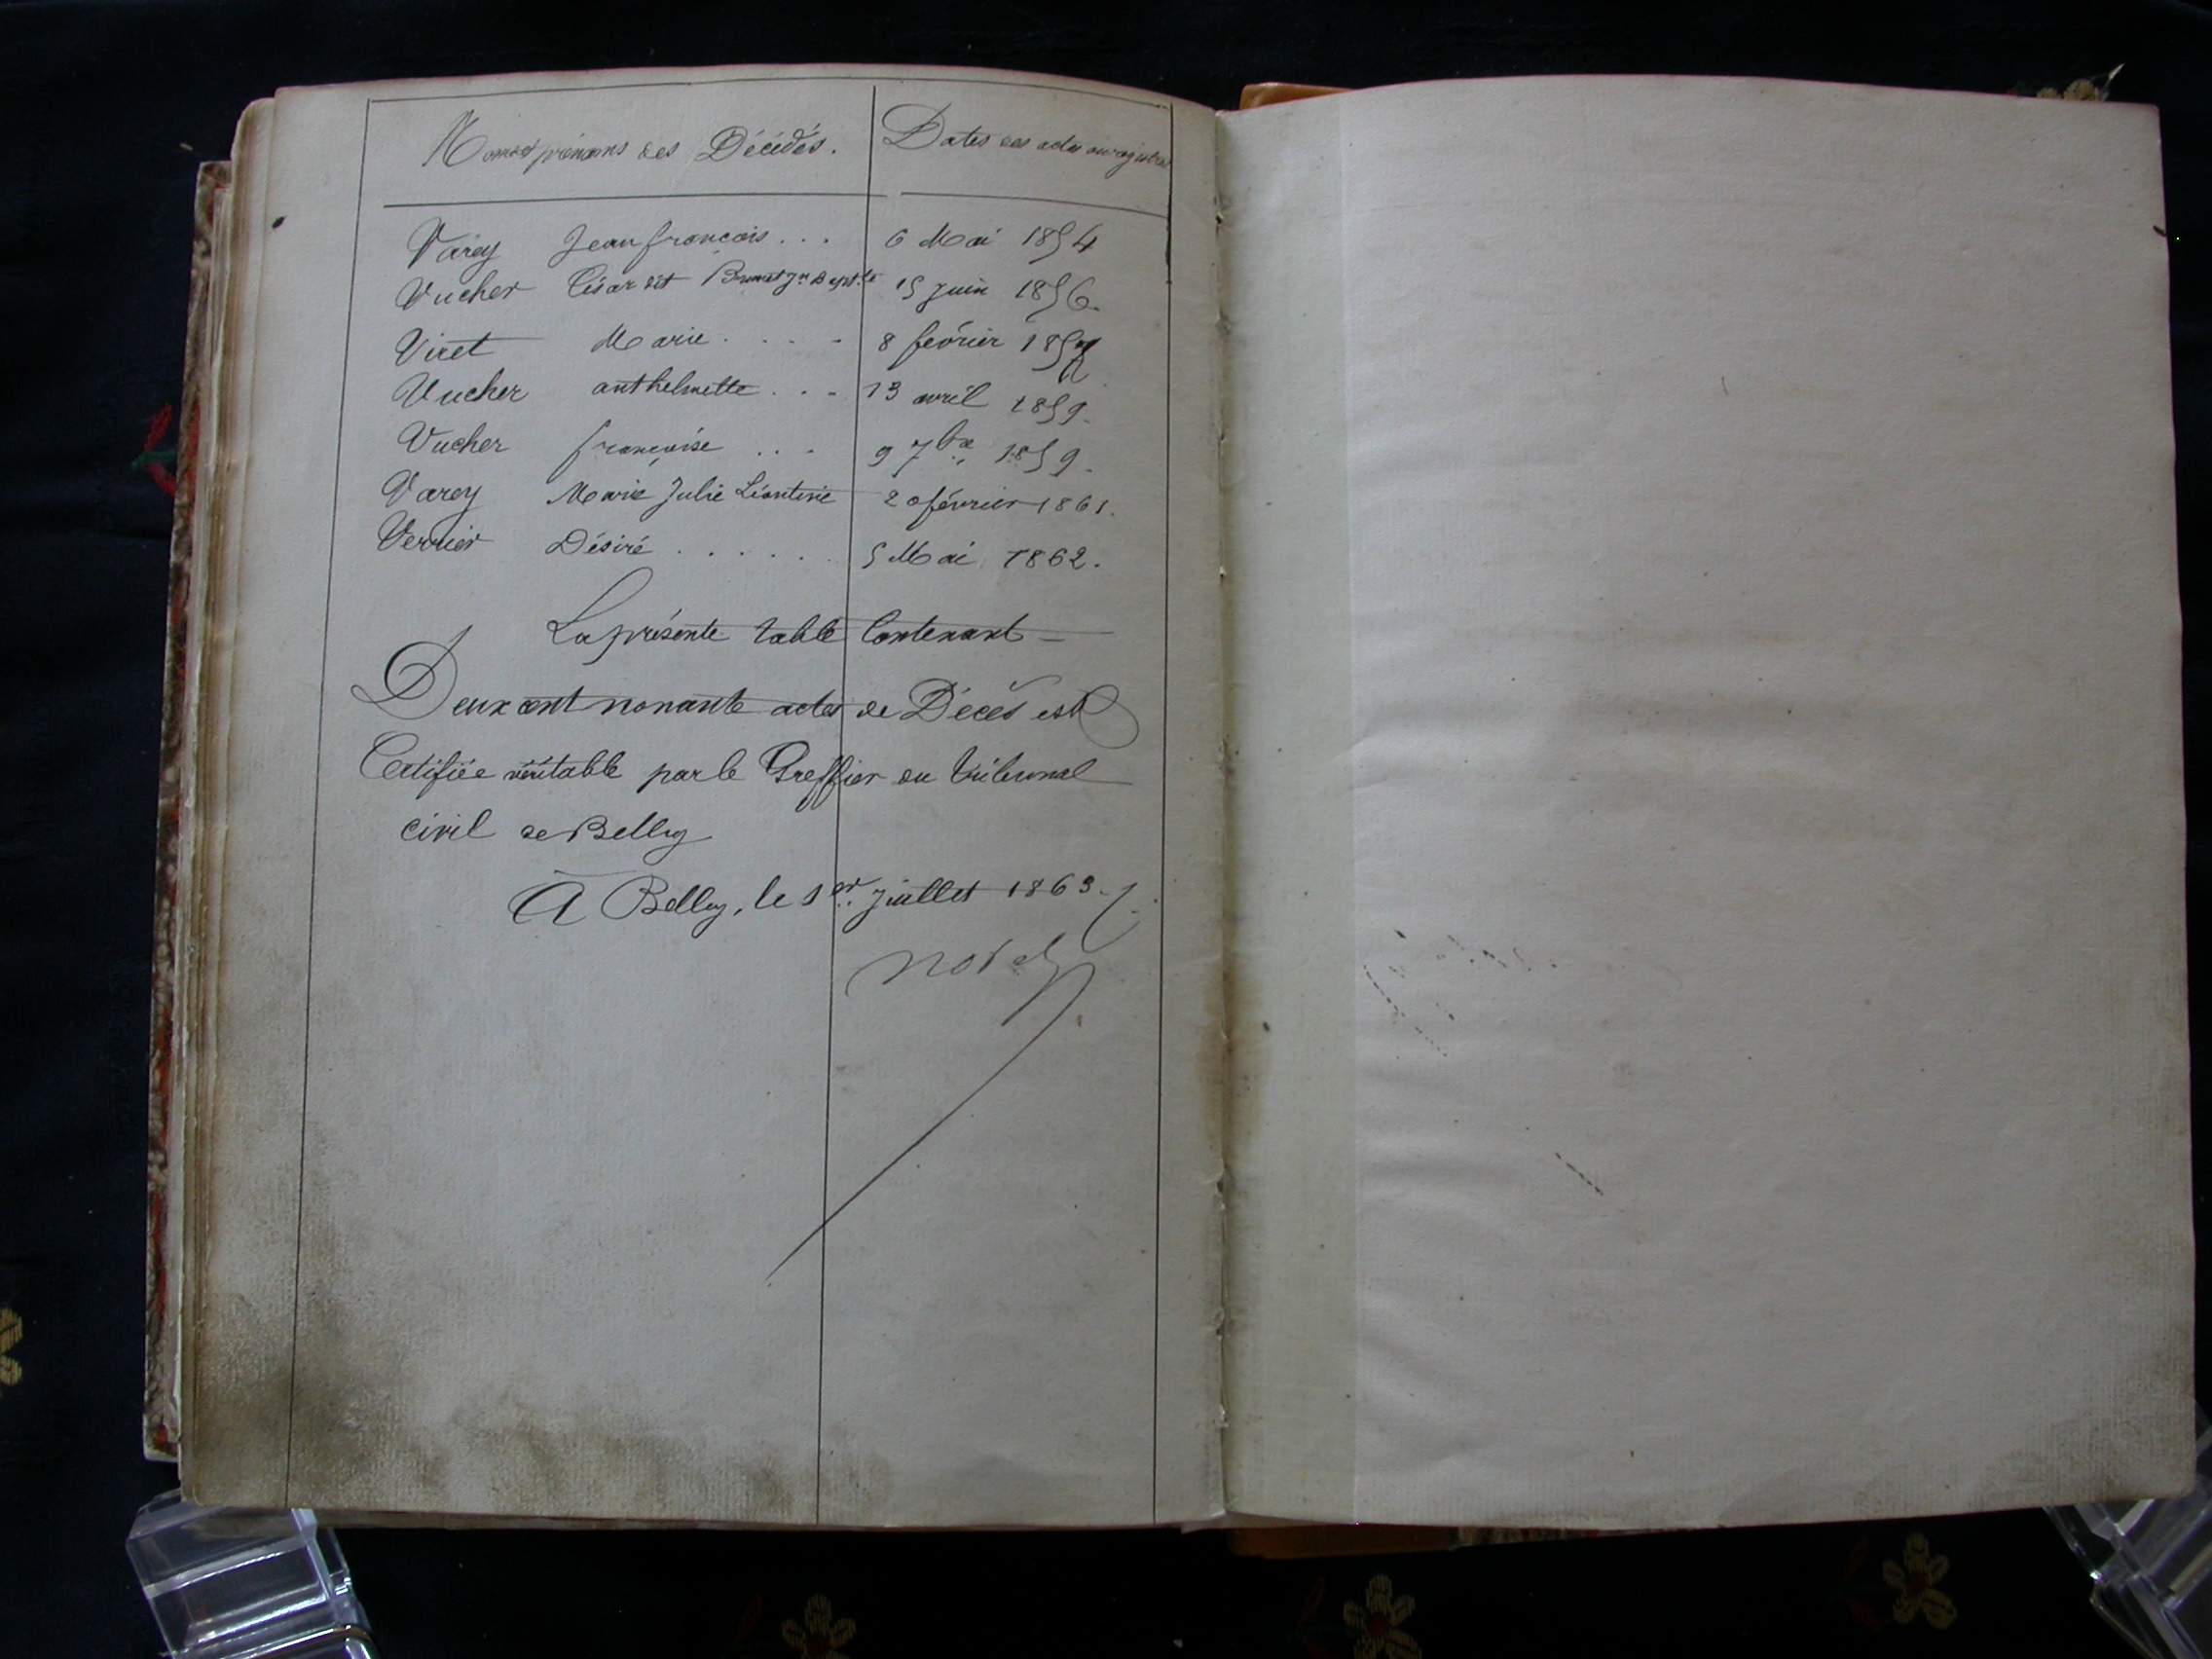 Noms et prénoms des Décédés. Dates des actes au registre
Varey Jean françois... 6 Mai 1854
Vucher César dit Brunet Jn Bapt.te 15 juin 1856.
Viret Marie.... 8 février 185
Vucher anthelmette... 13 avril 1859.
Vucher françoise... 9 7bre 1859.
Varey Marie Julie Léontine 20 février 1861.
Verrier Désiré...... 5 Mai 1862.
La présente table Contenant
Deux cent nonante actes de Décès est
Certifiée véritable par le Greffier du tribunal
civil de Belley
A Belley, le 1er juillet 1863.